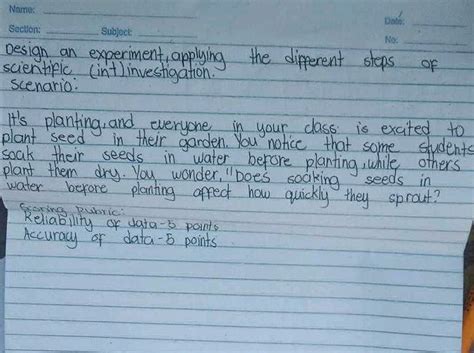 Name:
Date:
Section: Subject:
No.
Design an experiment, applying the different steps of
scientific (int) investigation.
Scenario:
It's planting, and everyone in your class is excited to
plant seed in their garden. You notice that some students
soak their seeds in water before planting, while others
plant them dry. You wonder, "Does soaking seeds in
water before planting affect how quickly they sprout?
Scoring Rubric:
Reliability of data-5 points
Accuracy of data-5 points